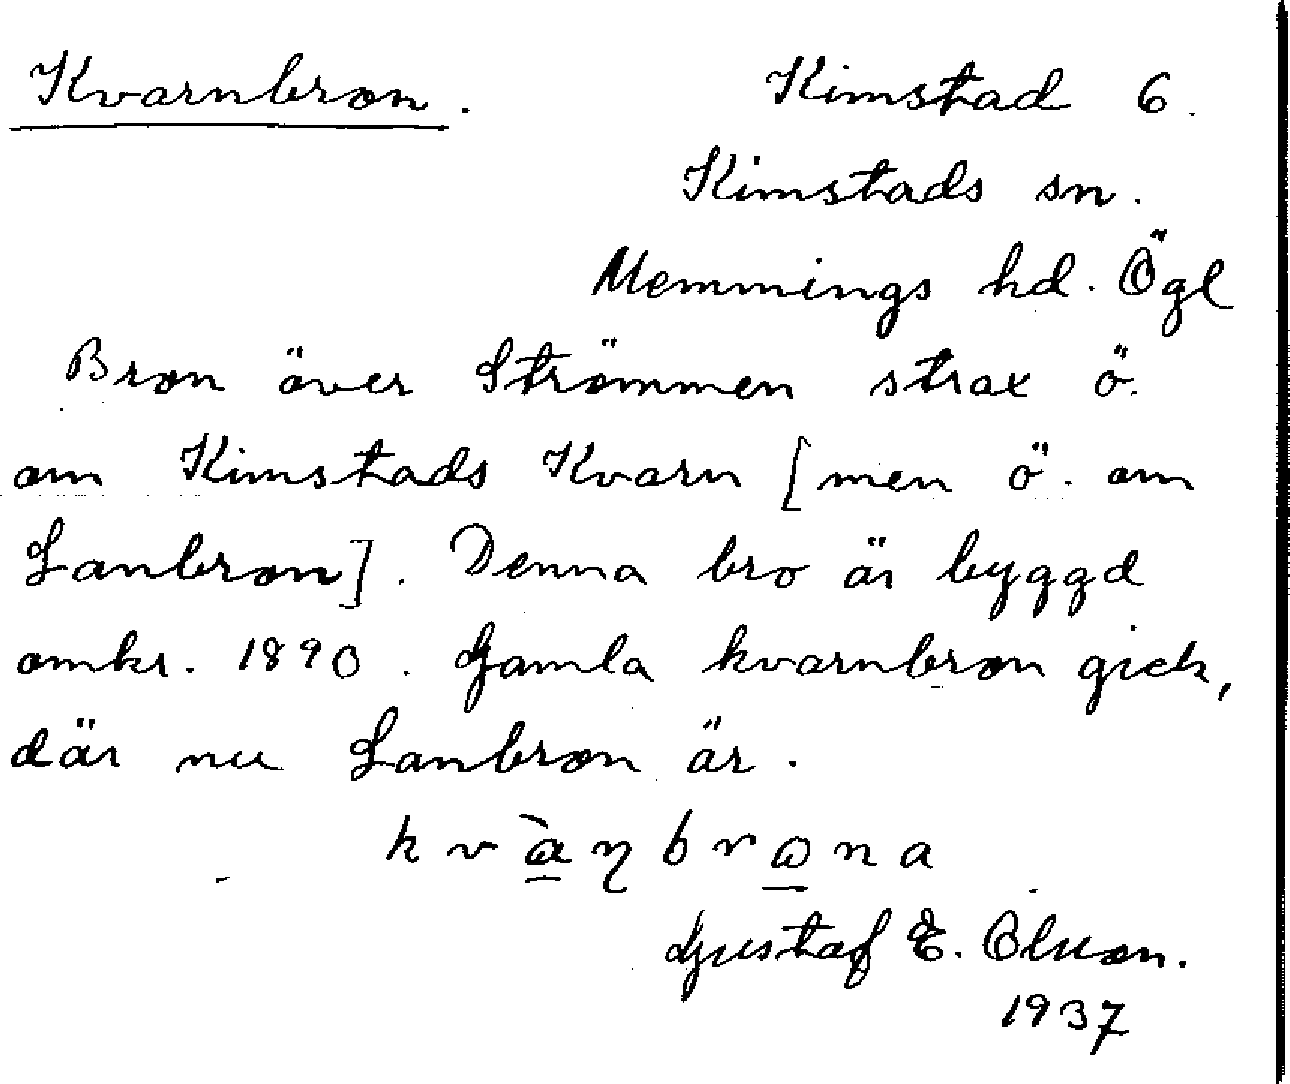 Kvarnbron. Kimstad 6.
Kimstads sn.
Memmings hd. Ögl
Bron över Strömmen strax ö.
om Kimstads Kvarn [men ö. om
Lanbron]. Denna bro är byggd
omkr. 1890. Gamla kvarnbron gick,
där nu Lanbron är.
Gustaf E. Olson.
1937